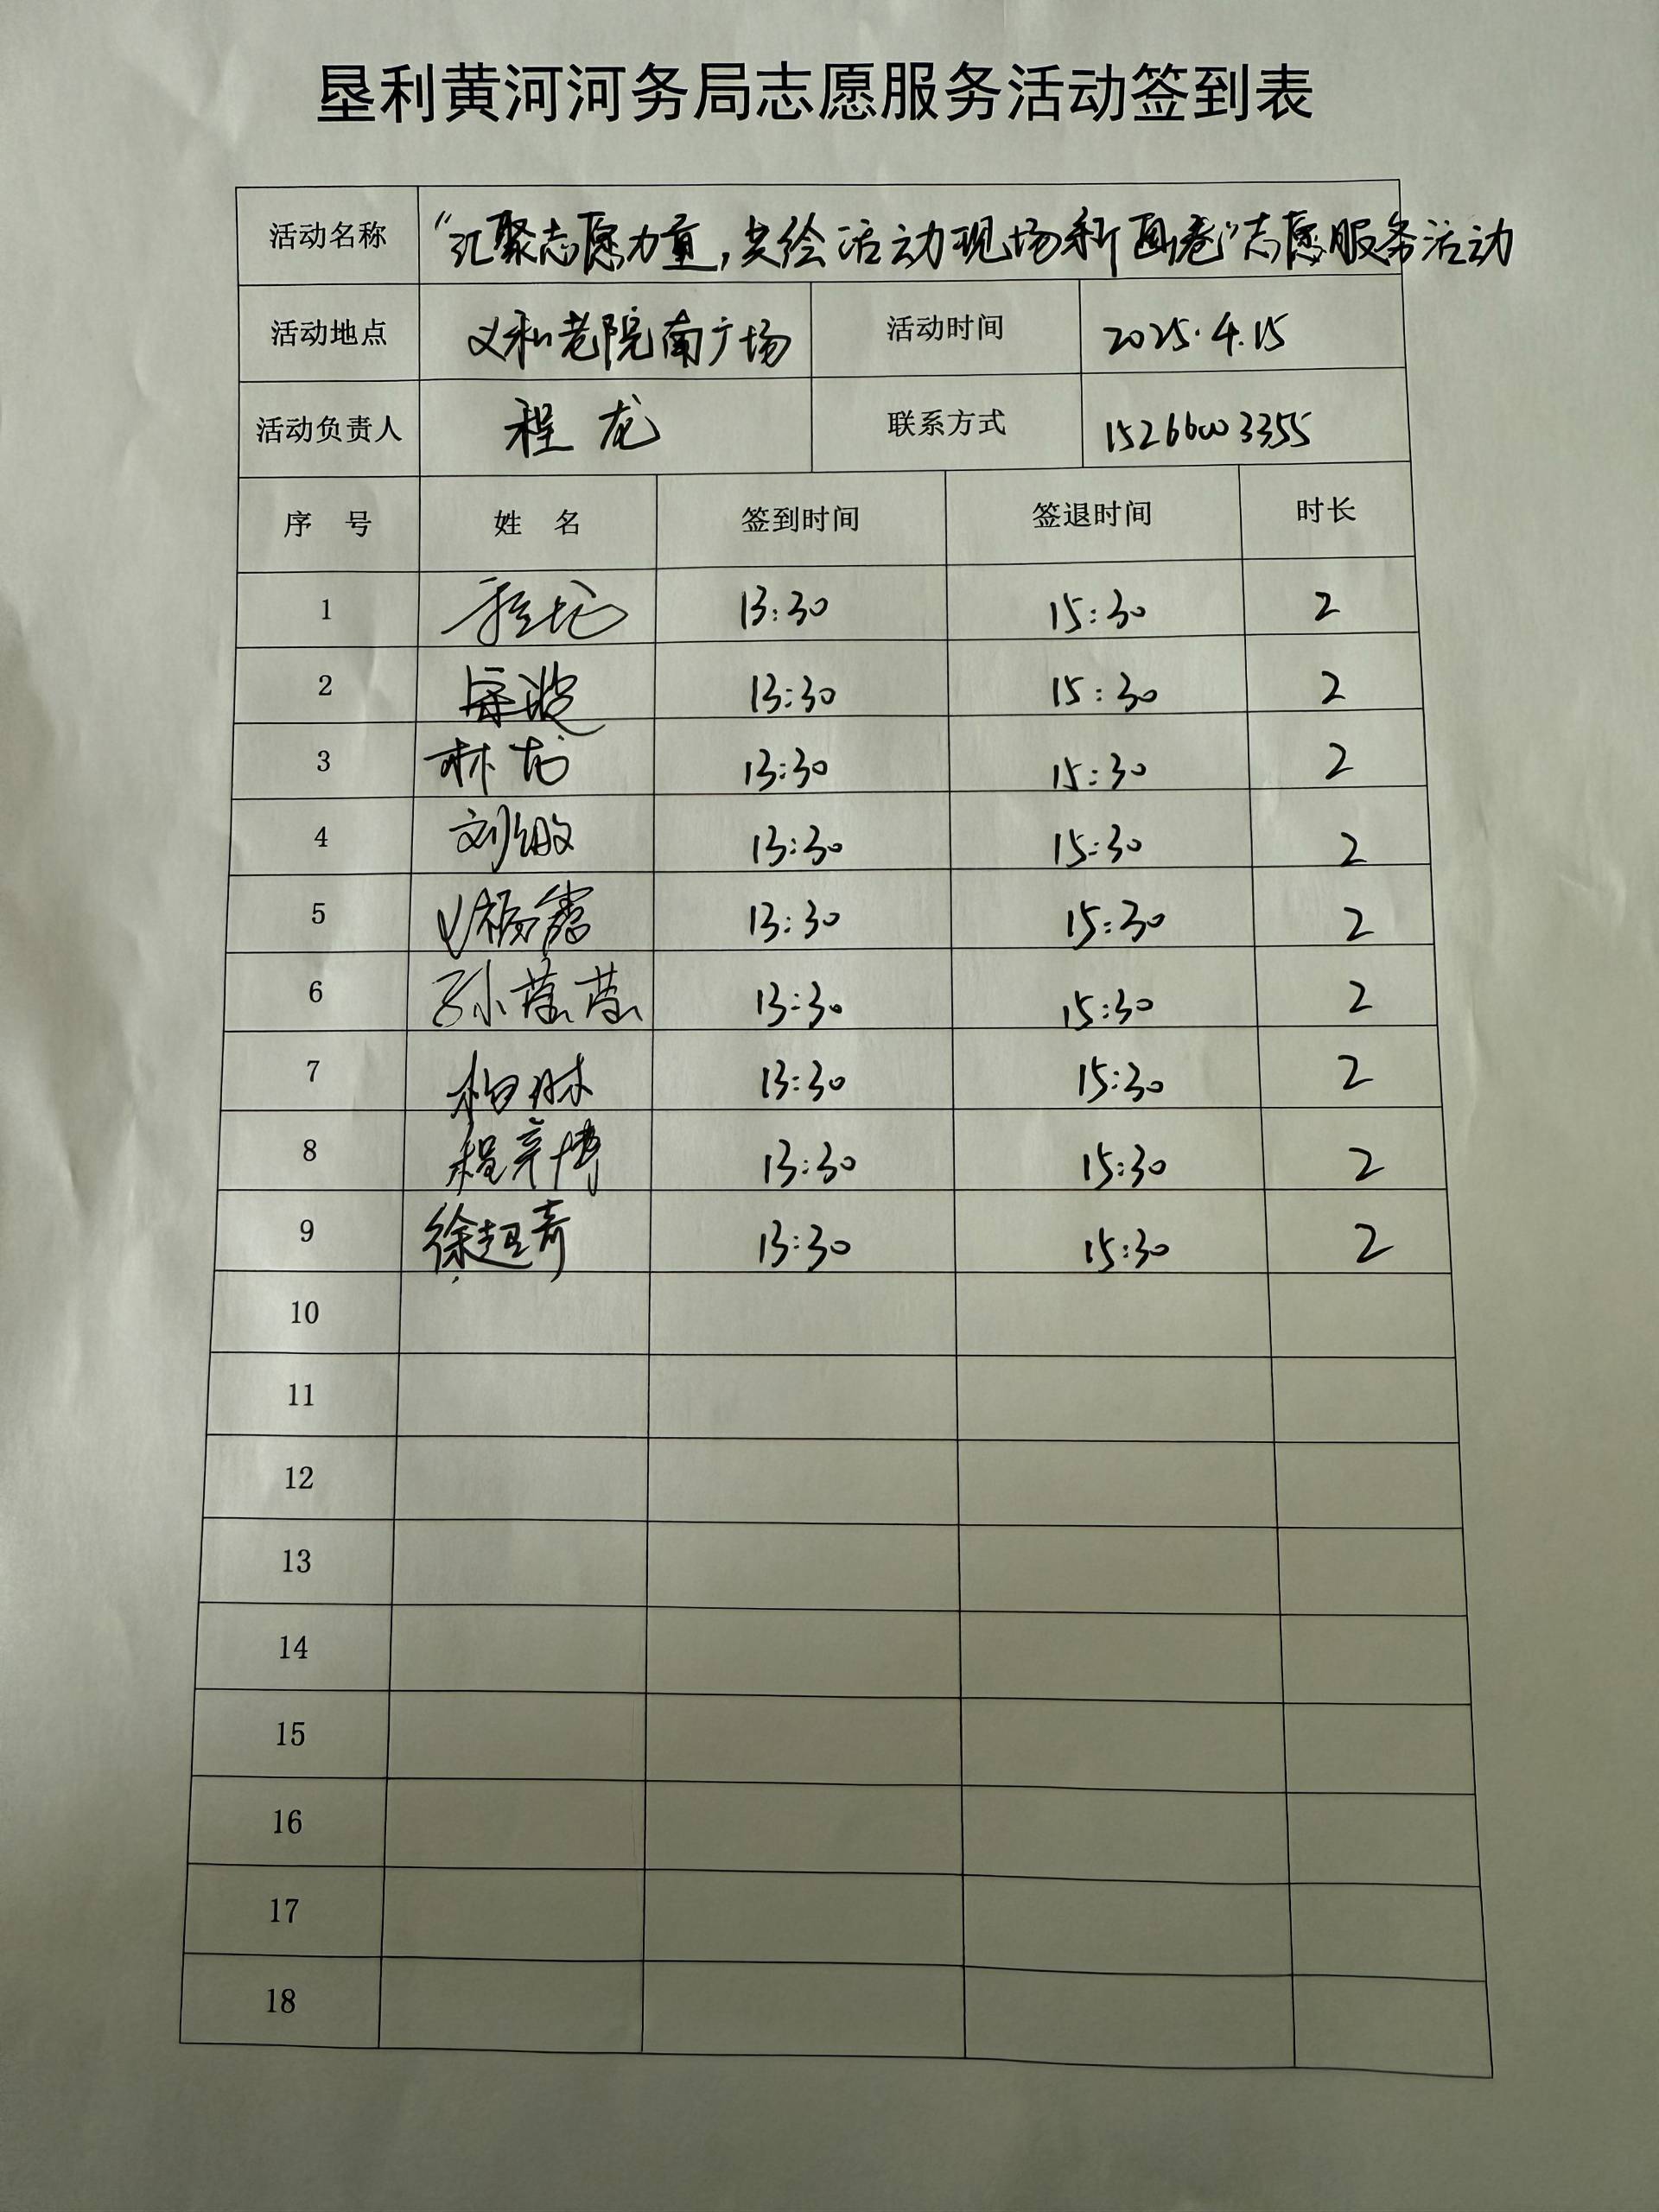 垦利黄河河务局志愿服务活动签到表
活动名称 “汇聚志愿力量,共绘活动现场新画卷”志愿服务活动
活动地点 义和老院南广场 活动时间 2025.4.15
活动负责人 程龙 联系方式 15266003355
序号 姓名 签到时间 签退时间 时长
1 程龙 13:30 15:30 2
2 13:30 15:30 2
3 林龙 13:30 15:30 2
4 刘敏 13:30 15:30 2
5 13:30 15:30 2
6 孙蕊蕊 13:30 15:30 2
7 柏林 13:30 15:30 2
8 程彦博 13:30 15:30 2
9 徐超奇 13:30 15:30 2
10
11
12
13
14
15
16
17
18